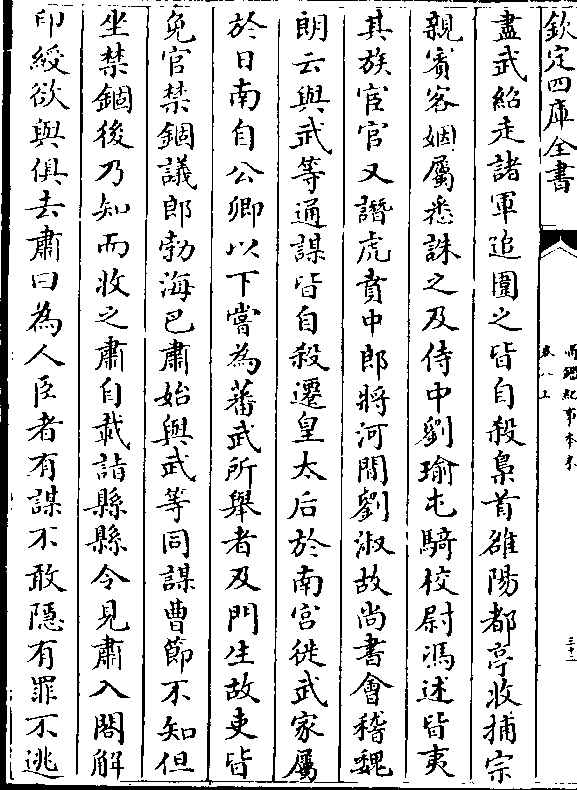 欽定四庫全書
通鑑紀事本末
卷八上
三十一
盡武紹走諸軍追圍之皆自殺梟首雒陽都亭收捕宗
親賓客姻屬悉誅之及侍中劉瑜屯騎校尉馮述皆夷
其族宦官又譖虎賁中郎將河間劉淑故尚書會稽魏
朗云與武等通謀皆自殺遷皇太后於南宮徙武家屬
於日南自公卿以下嘗為蕃武所舉者及門生故吏皆
免官禁錮議郎勃海巴肅始與武等同謀曹節不知但
坐禁錮後乃知而收之肅自載詣縣縣令見肅入閤解
印綬欲與俱去肅曰為人臣者有謀不敢隱有罪不逃